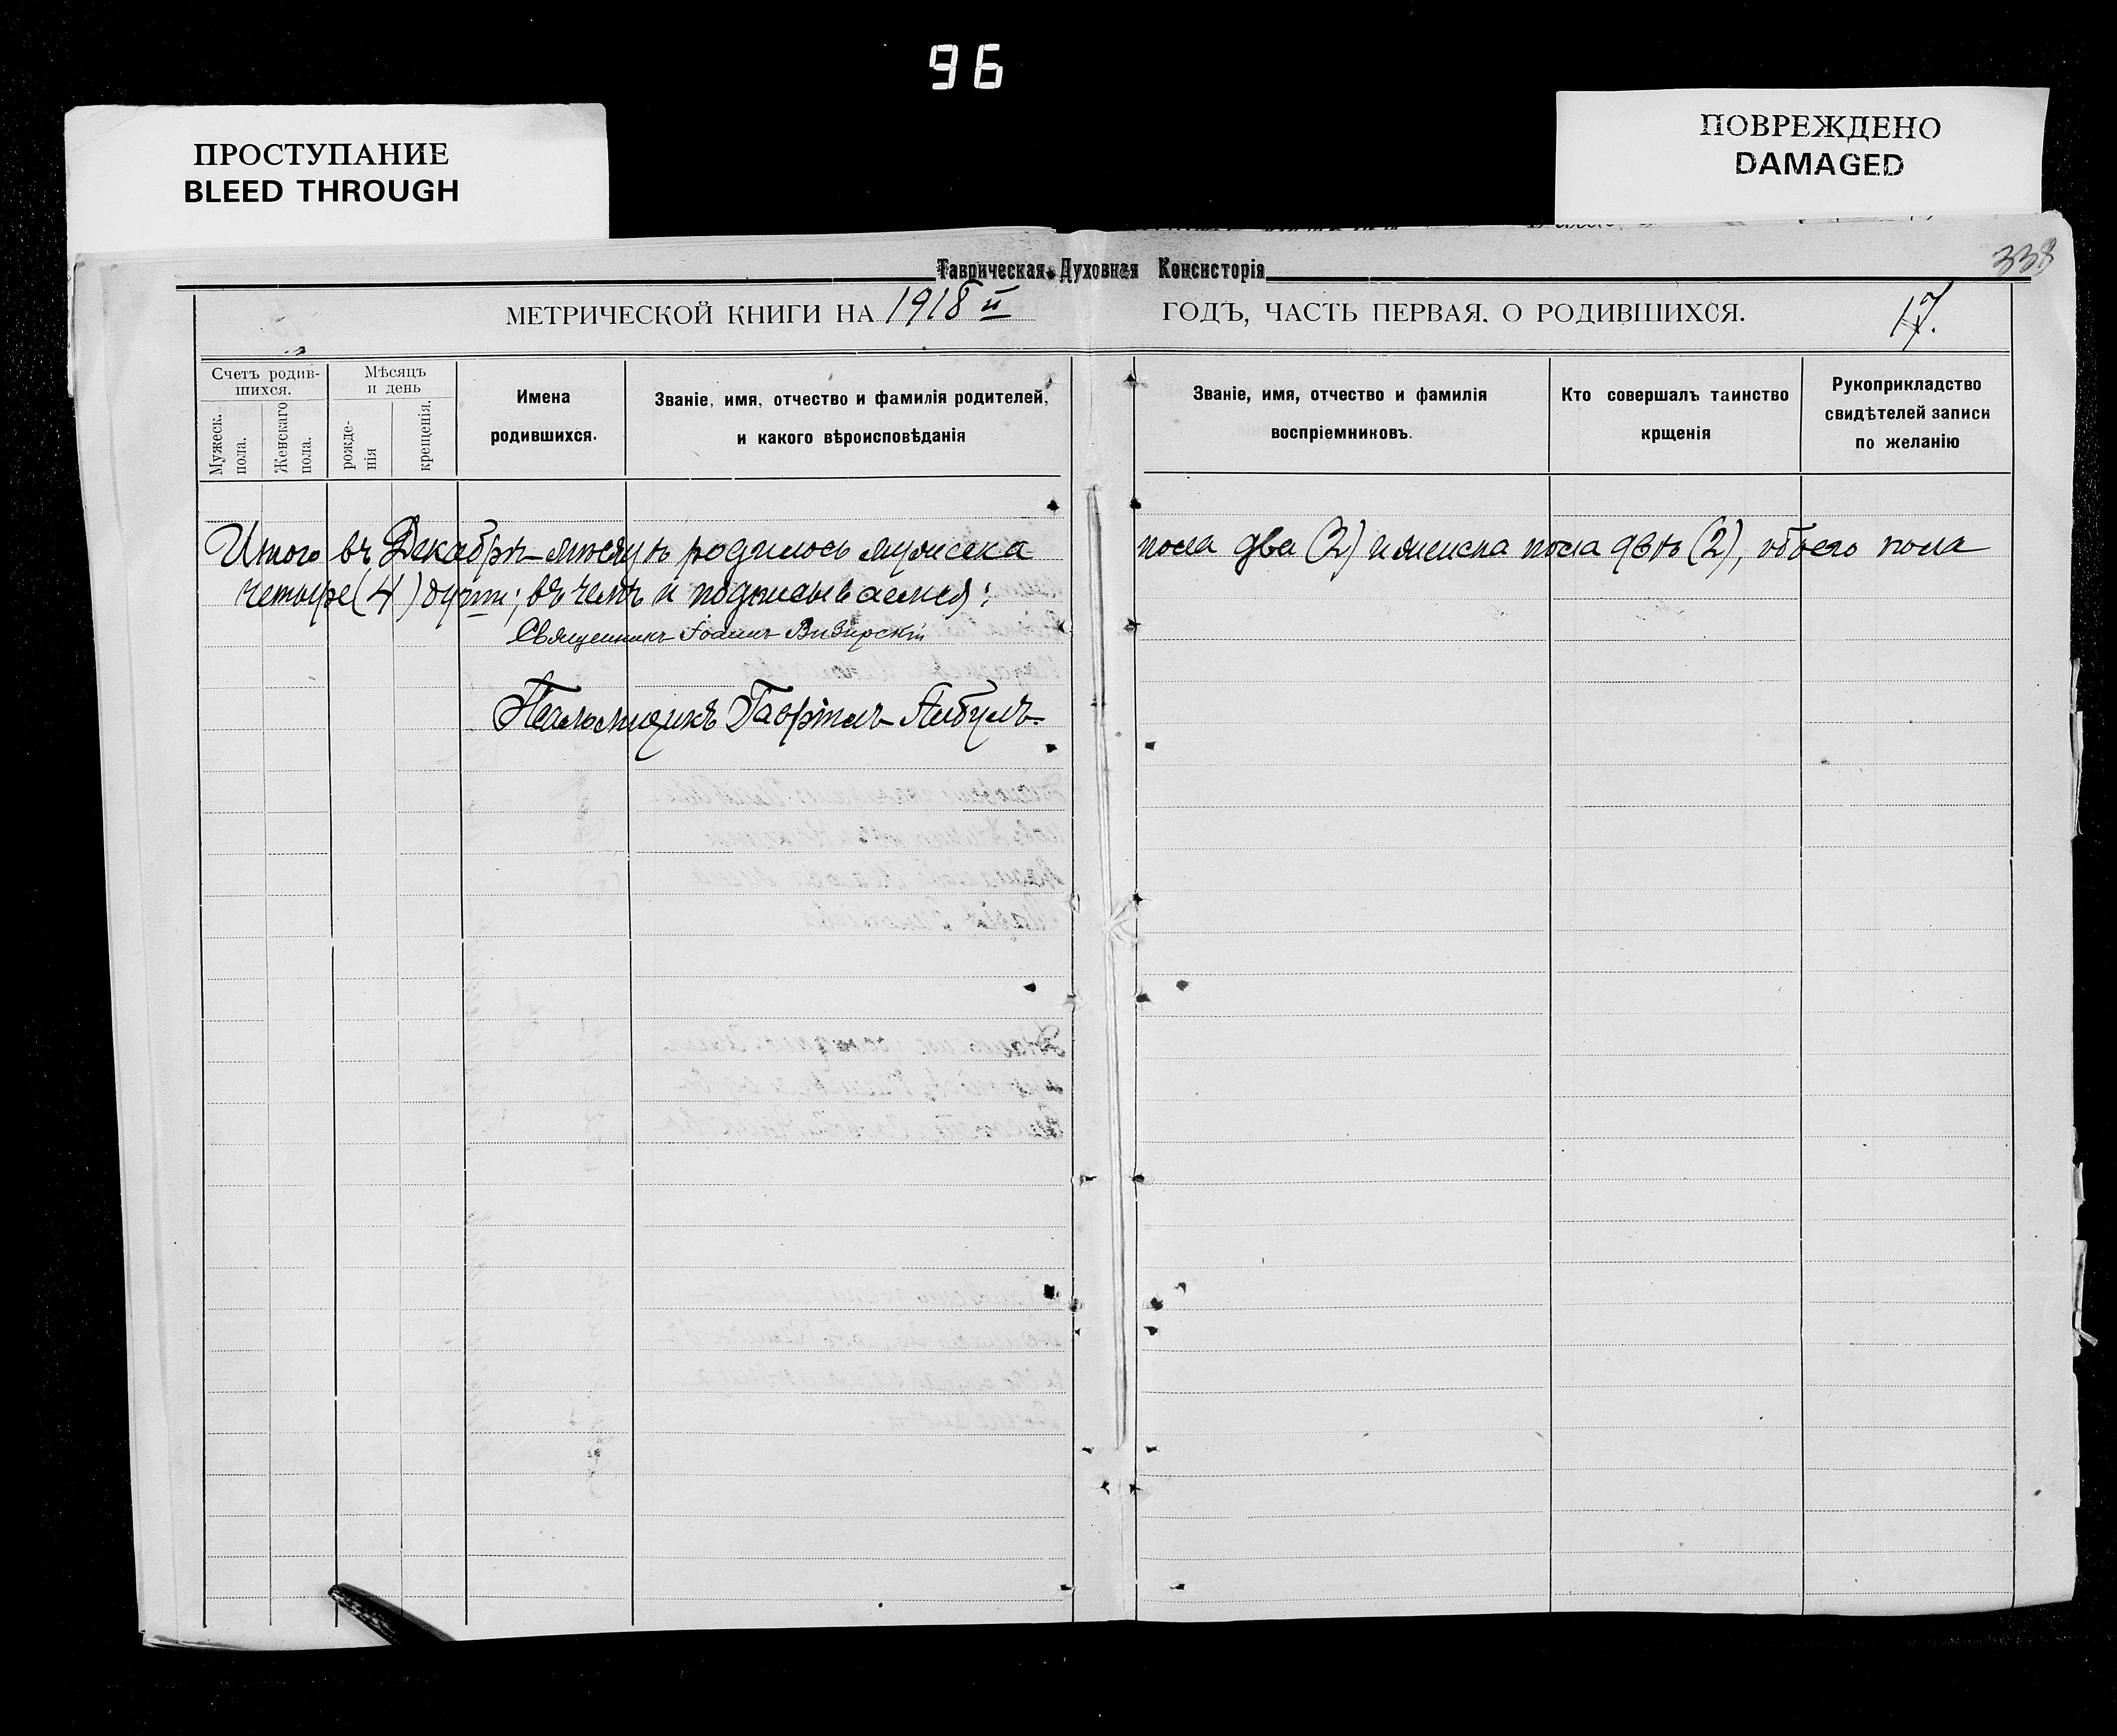 96
ПРОСТУПАНИЕ
BLEED THROUGH
ПОВРЕЖДЕНО
DAMAGED
Таврическая Духовная Консисторія
338
МЕТРИЧЕСКОЙ КНИГИ НА 1918 й ГОДЪ, ЧАСТЬ ПЕРВАЯ. О РОДИВШИХСЯ.
17.
Счетъ родив-
шихся.
Мужеск.
пола.
Женскаго
пола.
Мѣсяцъ
и день
рожде-
нія
крещенія.
Имена
родившихся.
Званіе, имя, отчество и фамилія родителей,
и какого вѣроисповѣданія
Званіе, имя, отчество и фамилія
воспріемниковъ.
Кто совершалъ таинство
крщенія
Рукоприкладство
свидѣтелей записи
по желанію
Итого въ Декабрѣ мѣсяцѣ родилось мужска пола два (2) и женска пола двѣ (2), обоего пола
четыре (4) души; въ чемъ и подписываемся:
Священникъ Іоаннъ Визирскій
Псаломщикъ Гавріилъ